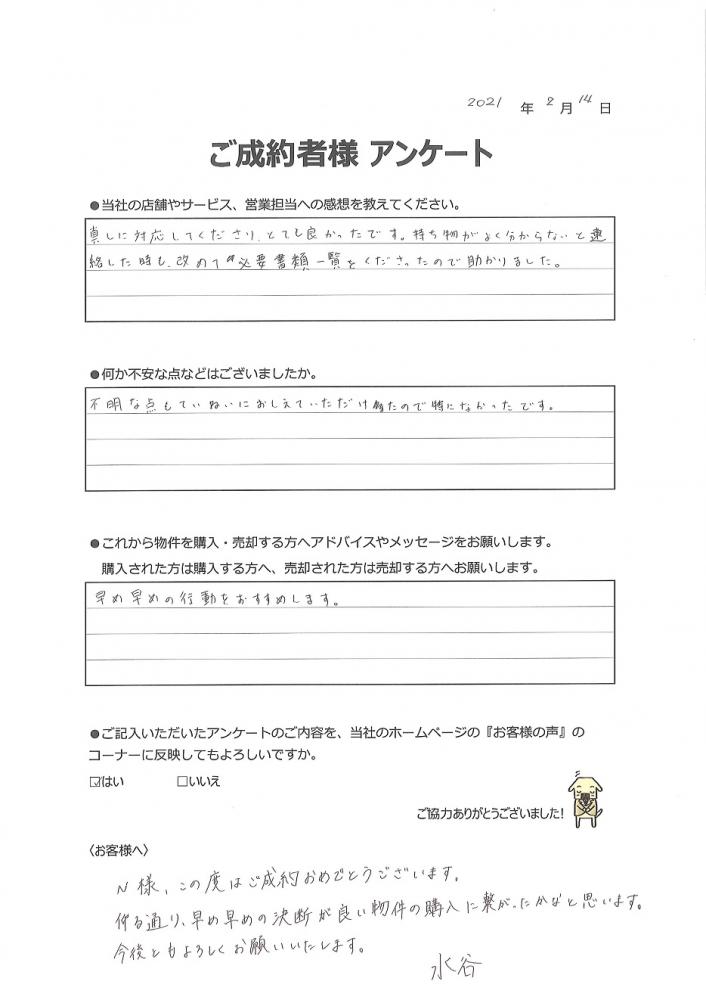 2021 年 2 月 14 日
ご成約者様 アンケート
●当社の店舗やサービス、営業担当への感想を教えてください。
真しに対応してくださり、とても良かったです。持ち物がよく分からないと連
絡した時も、改めて必要書類一覧をくださったので助かりました。
●何か不安な点などはございましたか。
不明な点もていねいにおしえていただけたので特になかったです。
●これから物件を購入・売却する方へアドバイスやメッセージをお願いします。
購入された方は購入する方へ、売却された方は売却する方へお願いします。
早め早めの行動をおすすめします。
●ご記入いただいたアンケートのご内容を、当社のホームページの『お客様の声』の
コーナーに反映してもよろしいですか。
☑はい □いいえ
ご協力ありがとうございました!
〈お客様へ〉
N様、この度はご成約おめでとうございます。
仰る通り、早め早めの決断が良い物件の購入に繋がったかなと思います。
今後ともよろしくお願いいたします。
水谷